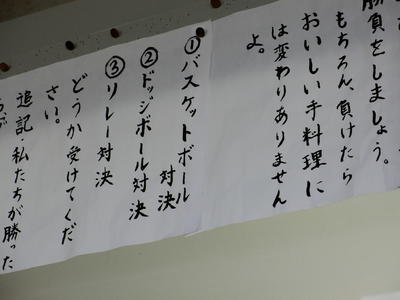 勝負をしましょう。
もちろん、負けたら
おいしい手料理に
は変わりありません
よ。
①バスケットボール
対決
②ドッジボール対決
③リレー対決
どうか受けてくだ
さい。
追記 私たちが勝った